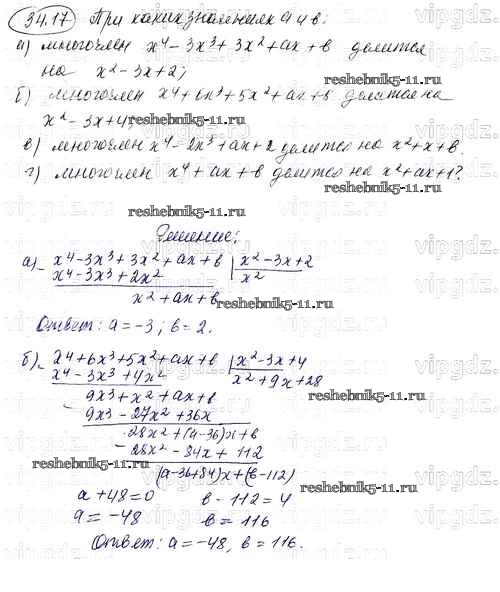 34.17 При каких значениях а и в:
а) многочлен x⁴ - 3x³ + 3x² + ax + в делится
на x² - 3x + 2;
б) многочлен x⁴ + 6x³ + 5x² + ax + в делится на
x² - 3x + 4;
в) многочлен x⁴ - 2x³ + ax + 2 делится на x² + x + в.
г) многочлен x⁴ + ax + в делится на x² + ax + 1?
reshebnik5-11.ru
reshebnik5-11.ru
Решение:
а) - x⁴ - 3x³ + 3x² + ax + в | x² - 3x + 2
x⁴ - 3x³ + 2x² | x²
x² + ax + в
reshebnik5-11.ru
Ответ: a = -3; в = 2.
б) - x⁴ + 6x³ + 5x² + ax + в | x² - 3x + 4
x⁴ - 3x³ + 4x² | x² + 9x + 28
- 9x³ + x² + ax + в
reshebnik5-11.ru
9x³ - 27x² + 36x
- 28x² + (a-36)x + в
28x² - 84x + 112
reshebnik5-11.ru
(a-36+84)x + (в-112)
reshebnik5-11.ru
a + 48 = 0 в - 112 = 4
a = -48 в = 116
Ответ: a = -48, в = 116.
vipgdz.ru